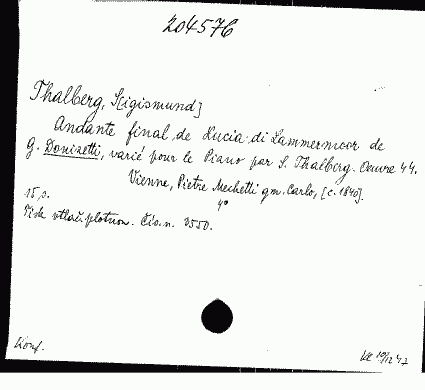 204576
Thalberg, S[igismund]
Andante final de Lucia di Lammermoor de
G. Donizetti, varié pour le Piano par S. Thalberg. Oeuvre 44.
Vienne, Pietro Mechetti qm. Carlo, [c. 1840].
15 s. 4°
Tisk vtlač. plotnou. Čís. n. 3550.
Konf.